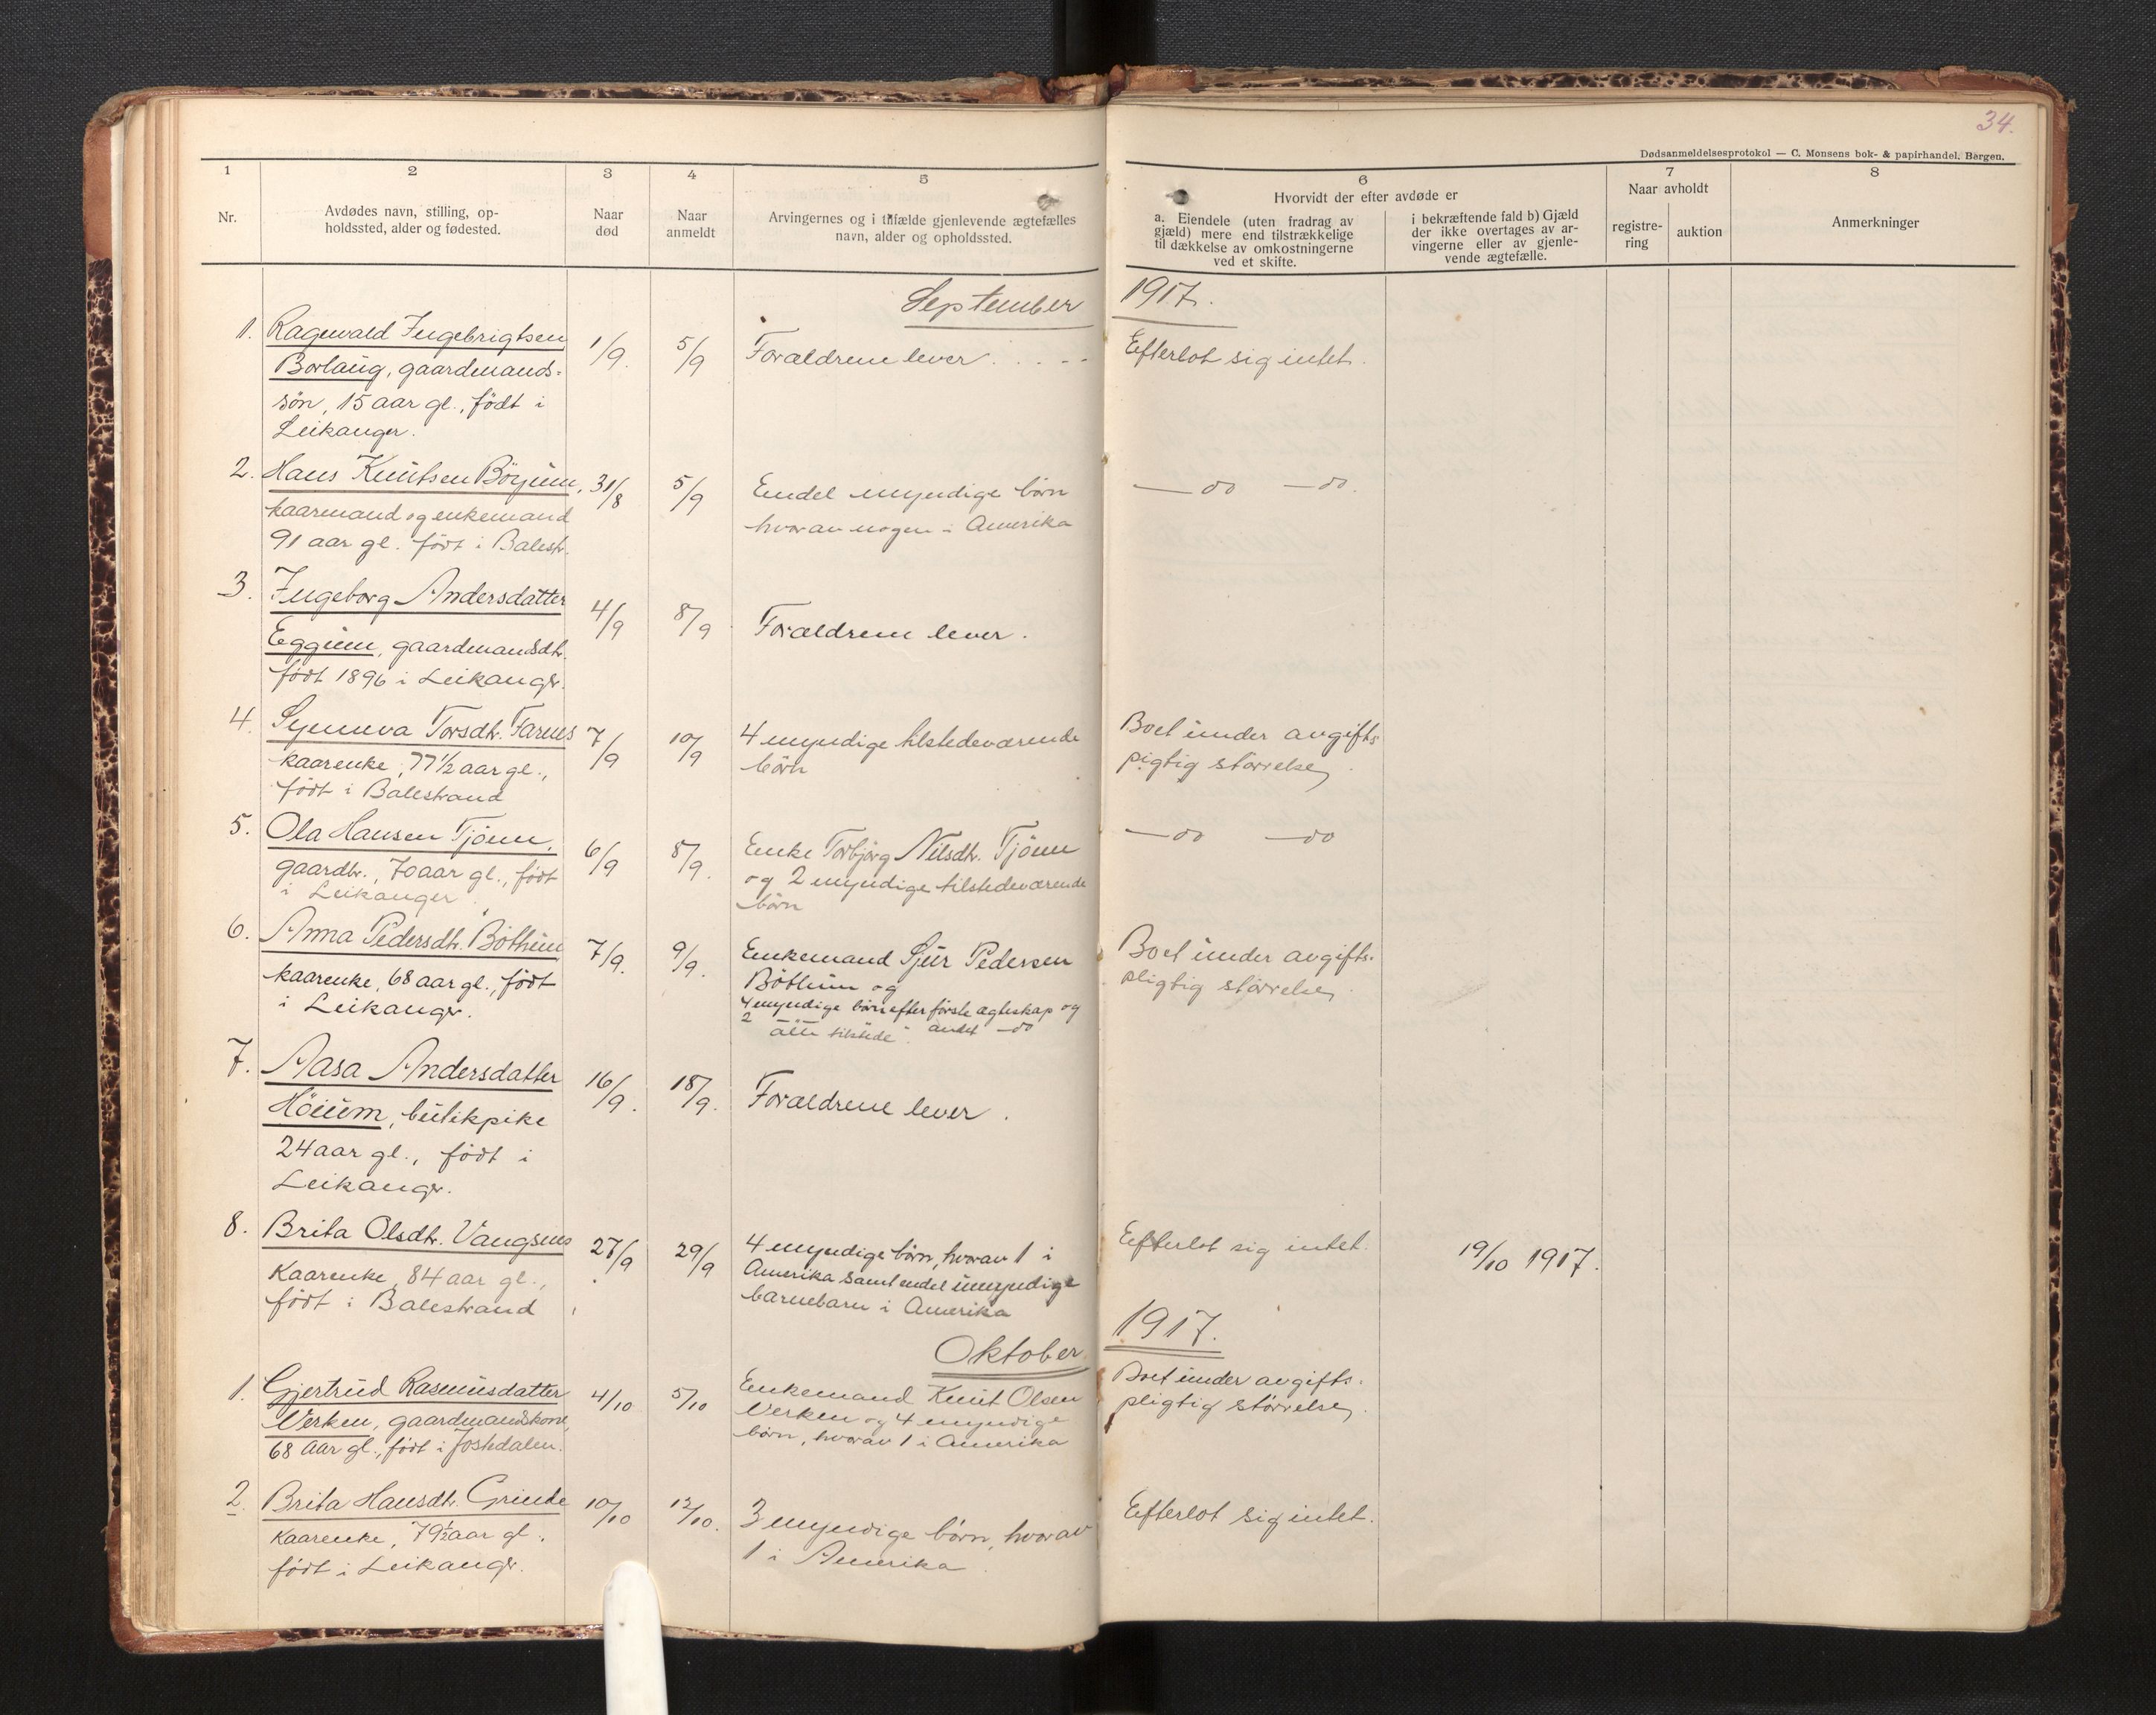 34.
Dødsanmeldelsesprotokol — C. Monsens bok- & papirhandel, Bergen.
1 2 3 4 5 6 7 8
Nr.
Avdødes navn, stilling, op-
holdssted, alder og fødested.
Naar
død
Naar
anmeldt
Arvingernes og i tilfælde gjenlevende ægtefælles
navn, alder og opholdssted.
Hvorvidt der efter avdøde er
a. Eiendele (uten fradrag av
gjæld) mere end tilstrækkelige
til dækkelse av omkostningerne
ved et skifte.
i bekræftende fald b) Gjæld
der ikke overtages av ar-
vingerne eller av gjenle-
vende ægtefælle.
Naar avholdt
registre-
ring
auktion
Anmerkninger
September 1917.
1. Ragnvald Ingebrigtsen
Borlaug, gaardmands-
søn, 15 aar gl., født i
Leikanger.
1/9. 5/9
Forældrene lever . . - -
Efterlot sig intet.
2. Hans Knutsen Böyum,
kaarmand og enkemand
91 aar gl. født i Balestr.
31/8 5/9
Endel myndige børn
hvorav nogen i Amerika
— do — do.
3. Ingeborg Andersdatter
Eggum, gaardmandsdtr.
født 1896 i Leikangr.
4/9 8/9
Forældrene lever.
4. Synneva Torsdtr. Farnes
kaarenke, 77 1/2 aar gl.,
født i Balestrand
7/9 10/9
4 myndige tilstedeværende
børn
Boet under avgifts
pigtig størrelse,
5. Ola Hansen Tjönn,
gaardbr., 70 aar gl., født
i Leikanger
6/9 8/9.
Enke Torbjørg Nilsdtr. Tjönn
og 2 myndige tilstedeværende
børn
— do — do
6. Anna Pedersdtr. Böthun
kaarenke, 68 aar gl., født
i Leikangr.
7/9. 9/9.
Enkemand Sjur Pedersen
Böthun og
4 myndige børn efter første ægteskap og
2 " " " andet — do
alle tilstede.
Boet under avgifts-
pligtig størrelse,
7. Aasa Andersdatter
Höium, butikpike
24 aar gl., født i
Leikangr.
16/9. 18/9.
Forældrene lever.
8. Brita Olsdtr. Vangsnes
Kaarenke, 84 aar gl.,
født i Balestrand
27/9 29/9
4 myndige børn, hvorav 1 i
Amerika samt endel umyndige
barnebarn i Amerika
Efterlot sig intet.
19/10 1917.
Oktober 1917.
1. Gjertrud Rasmusdatter
Verken, gaardmandskone,
68 aar gl., født i Jostedalen.
4/10 5/10
Enkemand Knut Olsen
Verken og 4 myndige
børn, hvorav 1 i Amerika
Boet under avgifts-
pligtig størrelse,
2. Brita Hansdtr. Grinde
Kaarenke, 79 1/2 aar gl.
født i Leikangr.
10/10 12/10.
3 myndige børn, hvorav
1 i Amerika
Efterlot sig intet.